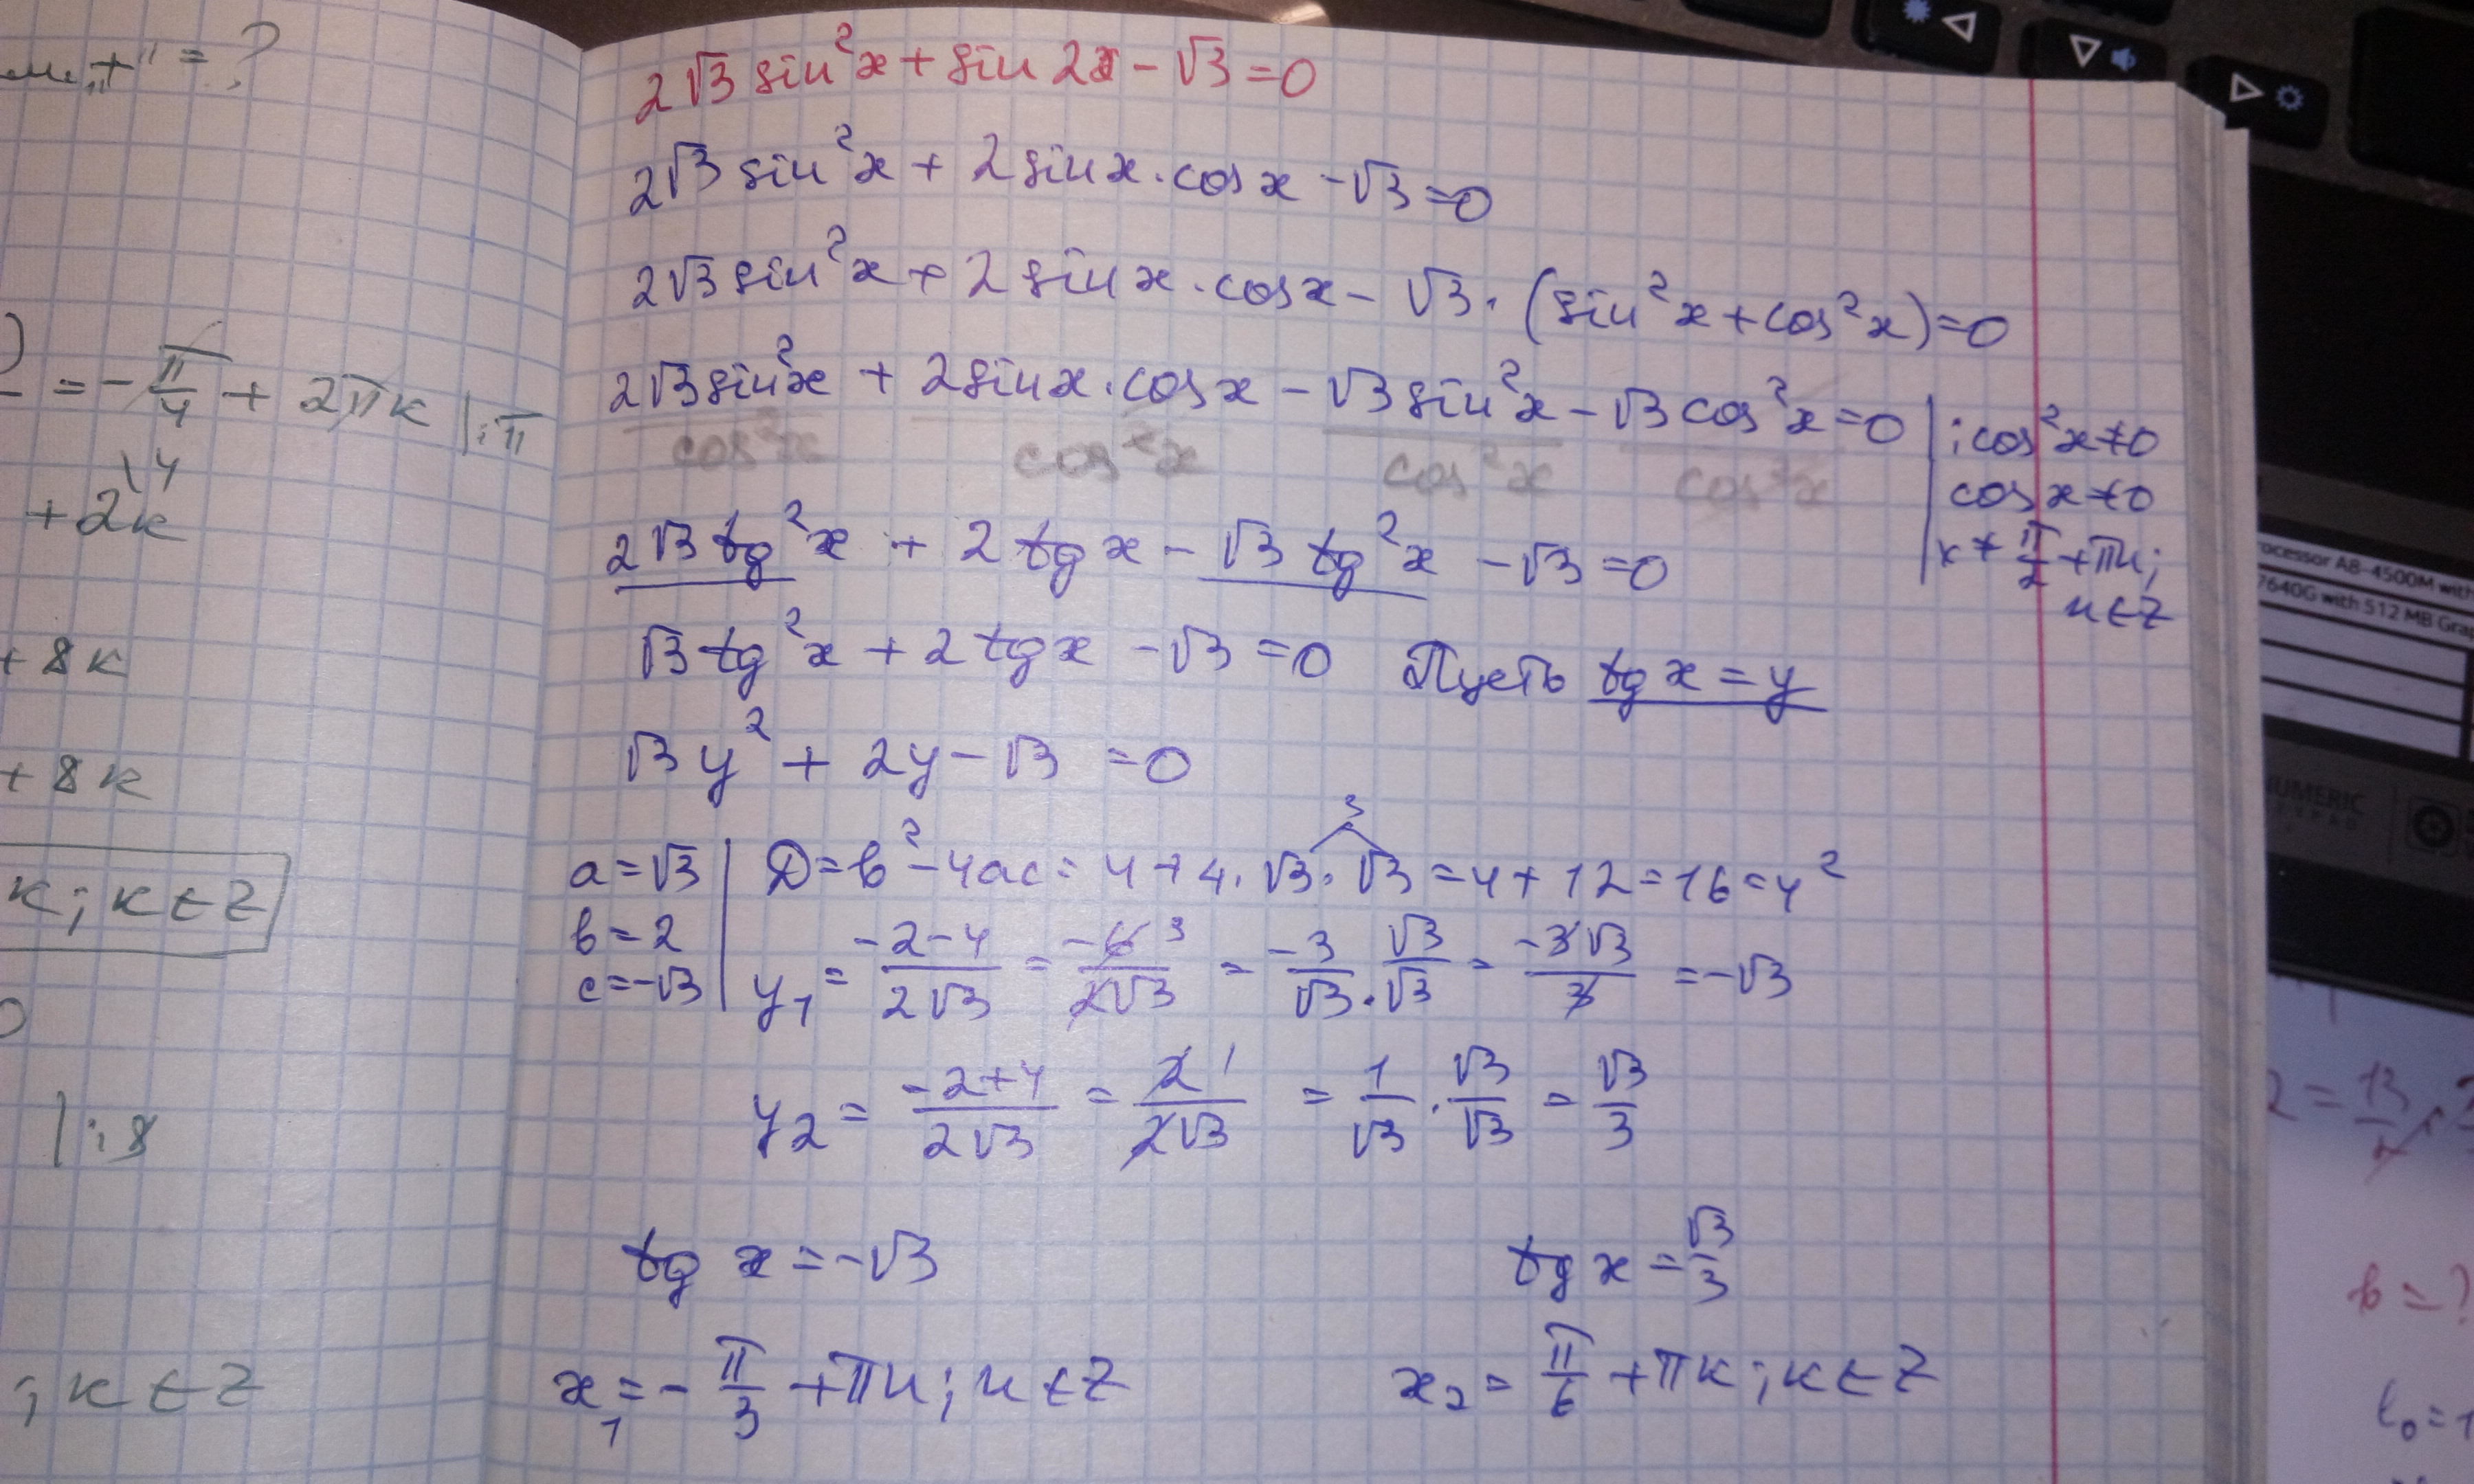 " = ?
= -π/4 + 2πк |:π
\4
+ 2к
+ 8к
+ 8к
к; к ∈ Z
|:8
; к ∈ Z
2√3 sin²x + sin 2x - √3 = 0
2√3 sin²x + 2 sin x · cos x - √3 = 0
2√3 sin²x + 2 sin x · cos x - √3 · (sin²x + cos²x) = 0
2√3 sin²x + 2 sin x · cos x - √3 sin²x - √3 cos²x = 0 | : cos²x ≠ 0
cos²x cos²x cos²x cos²x
cos x ≠ 0
x ≠ π/2 + πn;
n ∈ Z
2√3 tg²x + 2 tg x - √3 tg²x - √3 = 0
√3 tg²x + 2 tg x - √3 = 0 Пусть tg x = y
√3 y² + 2y - √3 = 0
3
a = √3 | D = b² - 4ac = 4 + 4 · √3 · √3 = 4 + 12 = 16 = 4²
b = 2
c = -√3
y₁ = (-2-4)/(2√3) = (-6 3)/(2√3) = -3/√3 · √3/√3 = (-3√3)/3 = -√3
y₂ = (-2+4)/(2√3) = (2 1)/(2√3) = 1/√3 · √3/√3 = √3/3
tg x = -√3 tg x = √3/3
x₁ = -π/3 + πn; n ∈ Z x₂ = π/6 + πк; к ∈ Z
rocessor A8-4500M with
7640G with 512 MB Grap
NUMERIC
2 = 13/
b = ?